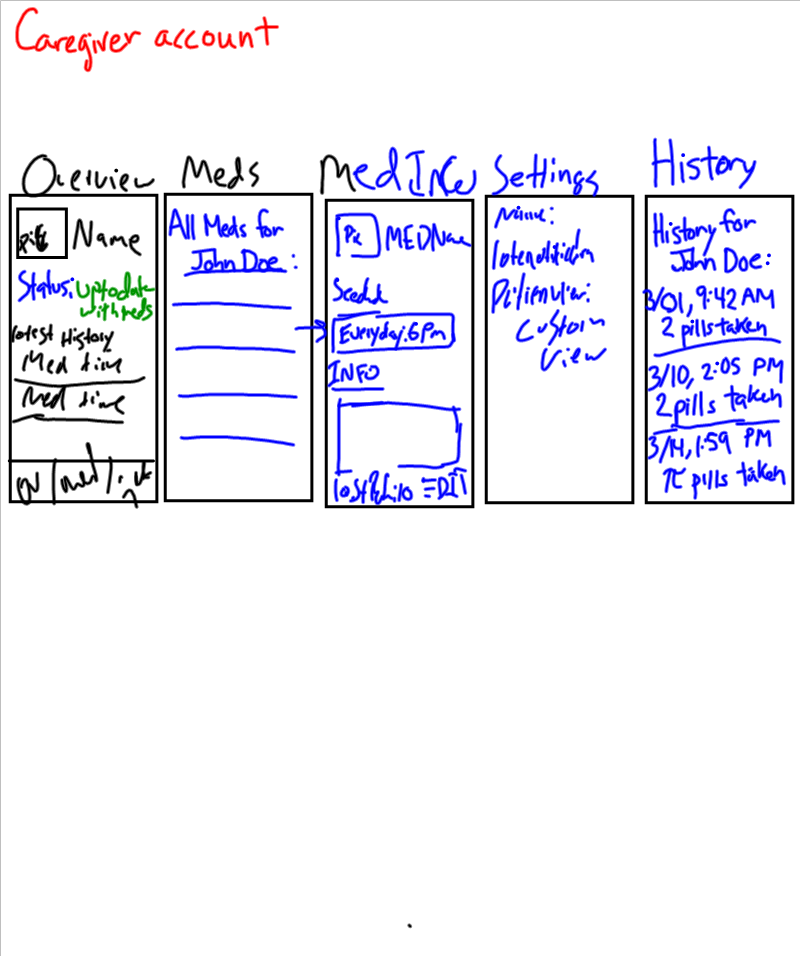 Caregiver account
Overview
Name
Status: Up to date
with meds
latest History
Med time
Med time
ov / med /
Meds
All Meds for
John Doe:
Med Info
Pic MED Name
Everyday: 6 Pm
INFO
EDIT
Settings
Name:
Custom
View
History
History for
John Doe:
3/01, 9:42 AM
2 pills taken
3/10, 2:05 PM
2 pills taken
3/14, 1:59 PM
π pills taken